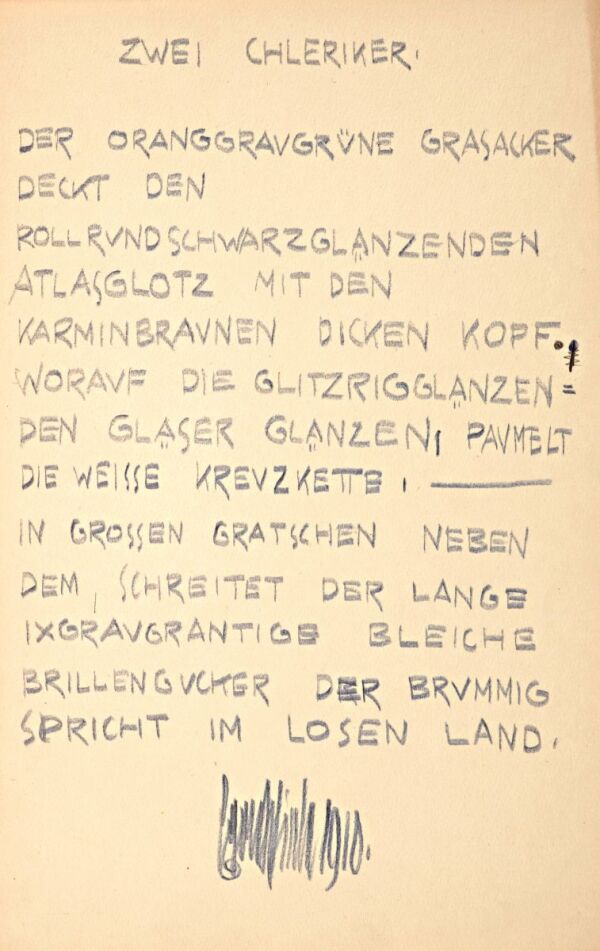 ZWEI CHLERIKER.
DER ORANGGRAUGRÜNE GRASACKER
DECKT DEN
ROLLRUNDSCHWARZGLÄNZENDEN
ATLASGLOTZ MIT DEN
KARMINBRAUNEN DICKEN KOPF.,
WORAUF DIE GLITZRIGGLÄNZEN=
DEN GLÄSER GLÄNZEN, PAUMELT
DIE WEISSE KREUZKETTE. —
IN GROSSEN GRATSCHEN NEBEN
DEM, SCHREITET DER LANGE
IXGRAUGRANTIGE BLEICHE
BRILLENGUCKER DER BRUMMIG
SPRICHT IM LOSEN LAND.
1910.